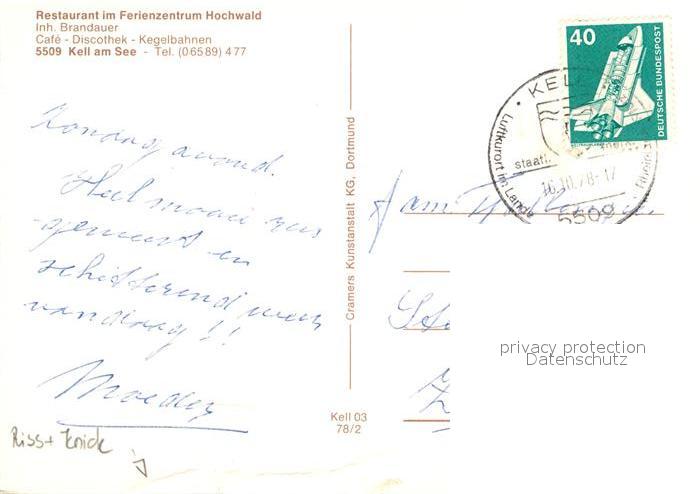 Restaurant im Ferienzentrum Hochwald
Inh. Brandauer
Café - Discothek - Kegelbahnen
5509 Kell am See - Tel. (06589) 477
40
DEUTSCHE BUNDESPOST
KELL
Luftkurort im Lande
staatl.
16.10.78-17
5509
Zondag avond.
Heel mooi
en
schitterend weer
vandaag!!
Moeder
Cramers Kunstanstalt KG, Dortmund
Fam.
privacy protection
Datenschutz
Kell 03
78/2
Riss + Knick